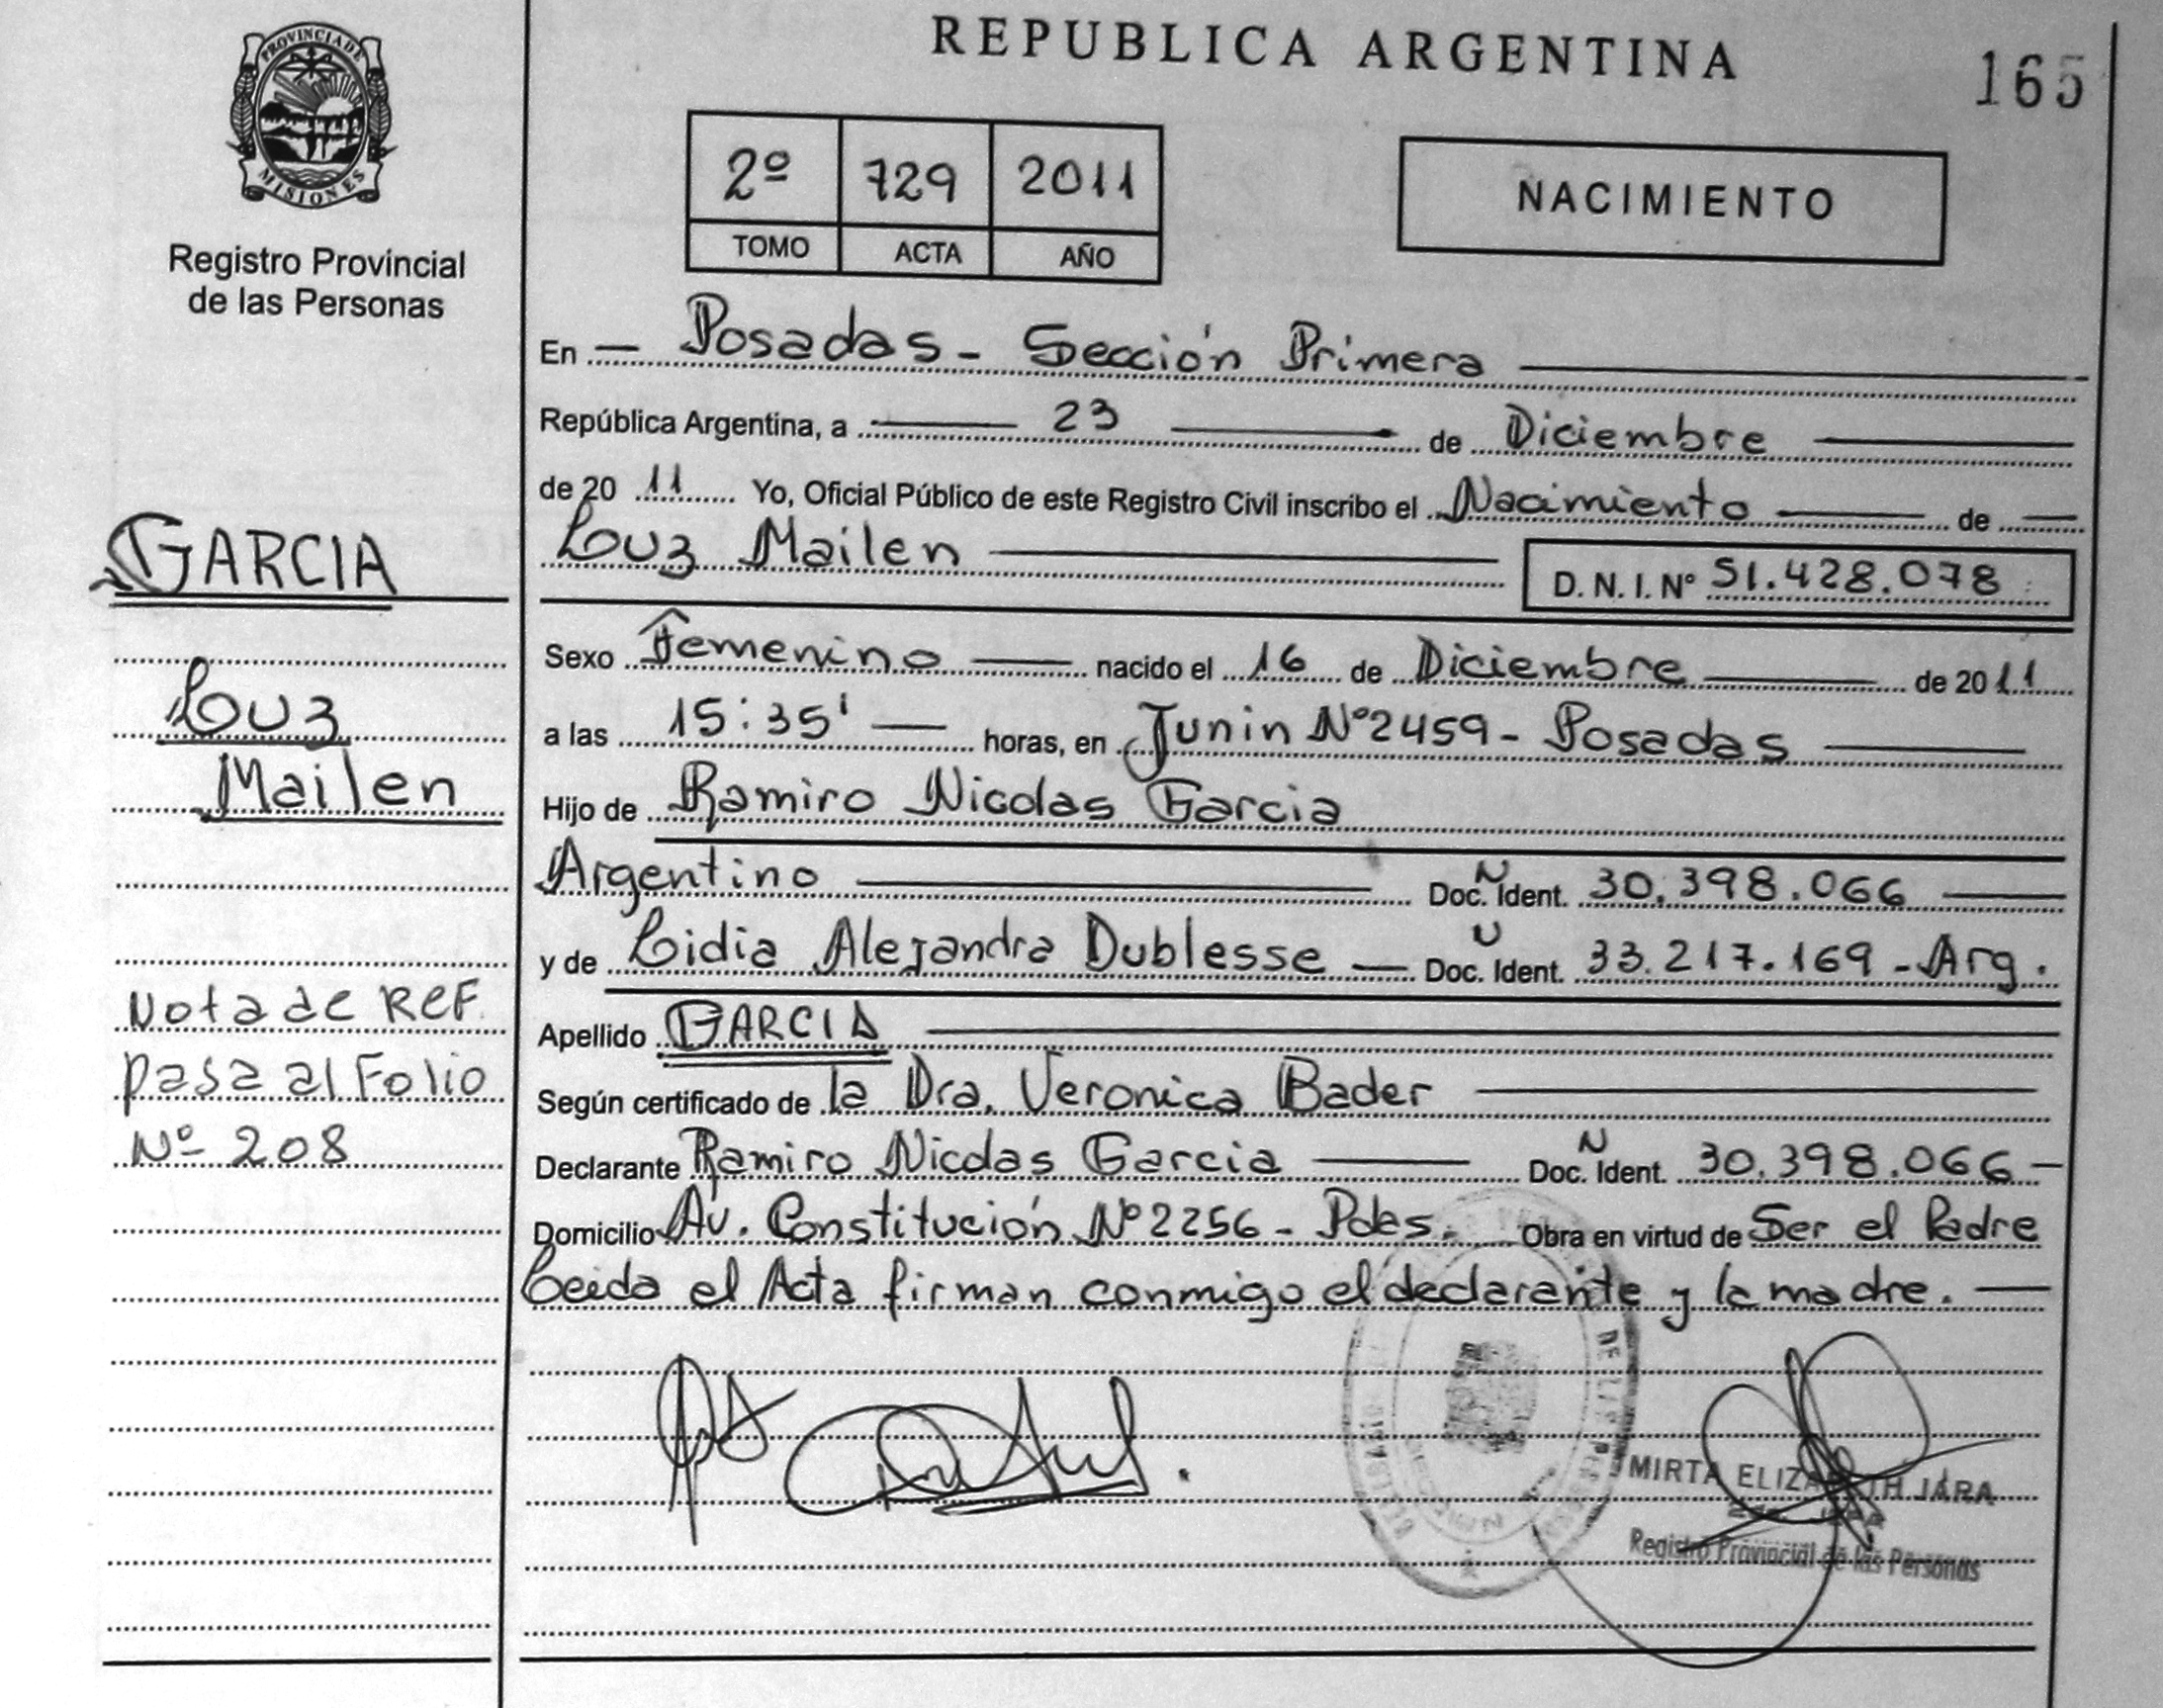 PROVINCIA DE
MISIONES
Registro Provincial
de las Personas
GARCIA
Luz
Mailen
Nota de REF.
pasa al Folio
Nº 208
REPUBLICA ARGENTINA
165
2º 729 2011
TOMO ACTA AÑO
NACIMIENTO
En — Posadas - Sección Primera
República Argentina, a 23 de Diciembre
de 20 11 Yo, Oficial Público de este Registro Civil inscribo el Nacimiento de
Luz Mailen
D. N. I. Nº 51.428.078
Sexo Femenino nacido el 16 de Diciembre de 2011
a las 15:35' horas, en Junin Nº2459 - Posadas
Hijo de Ramiro Nicolas Garcia
Argentino Doc. N Ident. 30.398.066
y de Lidia Alejandra Dublesse — Doc. U Ident. 33.217.169 - Arg.
Apellido GARCIA
Según certificado de la Dra. Veronica Bader
Declarante Ramiro Nicolas Garcia Doc. N Ident. 30.398.066 —
Domicilio Av. Constitución Nº 2256 - Pdas. Obra en virtud de Ser el Padre
Leida el Acta firman conmigo el declarante y la madre. —
MIRTA ELIZABETH JARA
Registro Provincial de las Personas